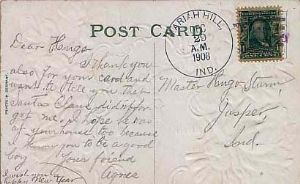 POST CARD
MARIAH HILL,
DEC
29
A.M.
1908
IND.
Dear Hugo
I thank you
also for your card and
want to tell you that
Santas Claus didn't for
get me. I hope he was
at your house too because
I know you to be a good
boy Your friend
Agnes
I wish you a
Happy New Year
Master Hugo Sturm
Jasper,
Ind.